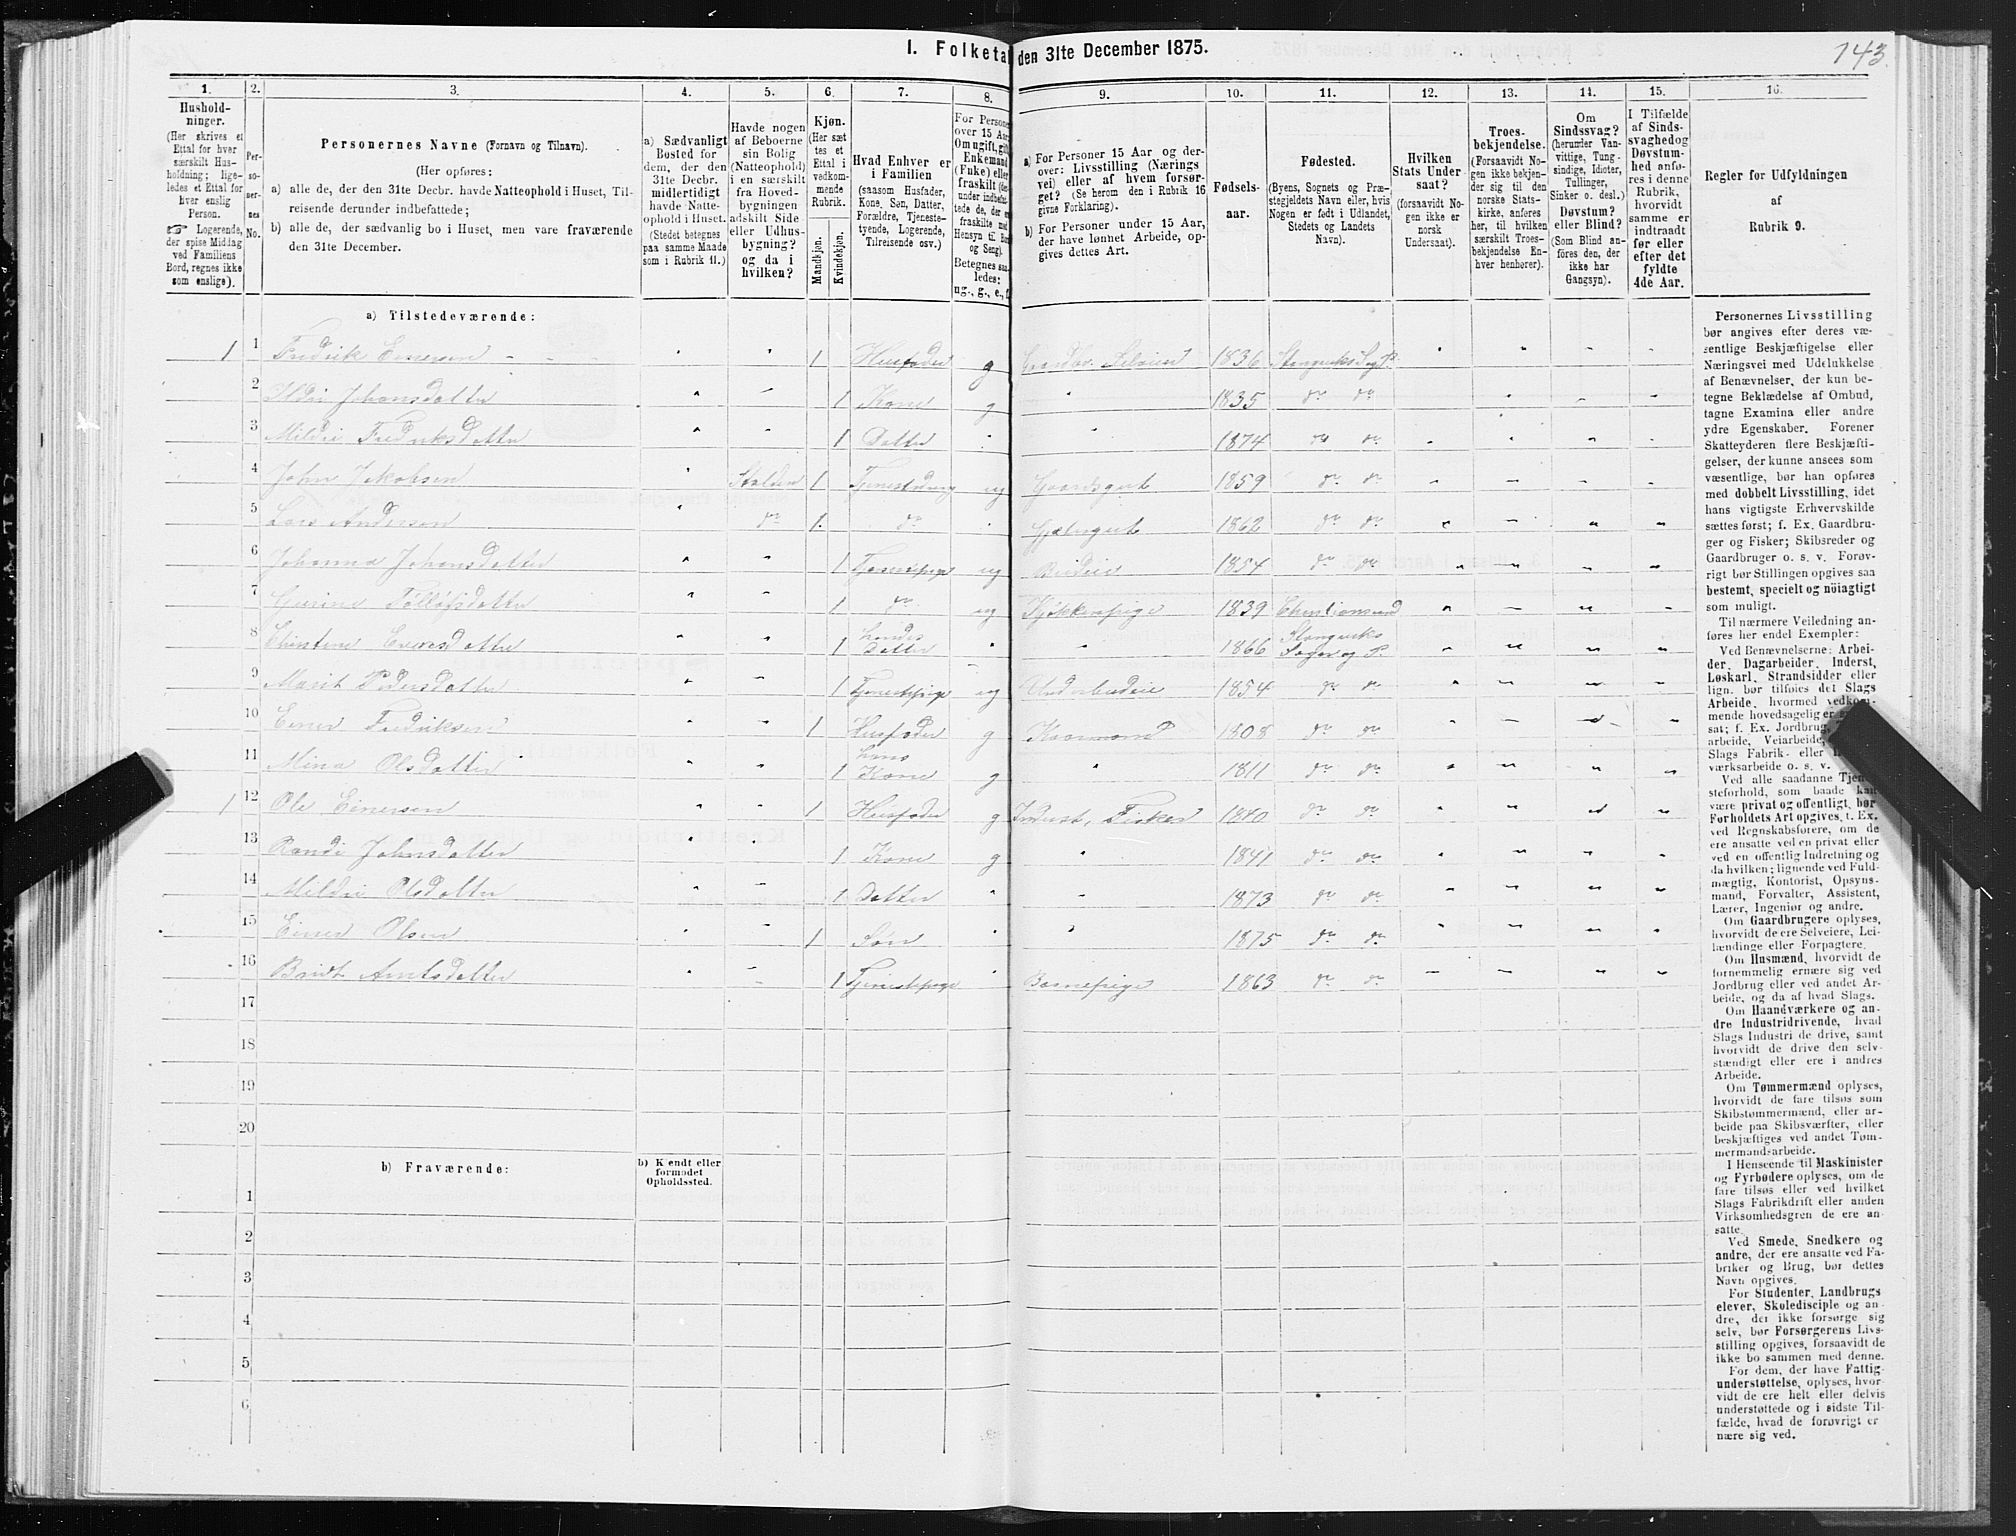 1. Folketal den 31te December 1875.
143
1.
2.
3.
4.
5.
6.
7.
8.
9.
10.
11.
12.
13.
14.
15.
16.
Hushold-
ninger.
(Her skrives et
Ettal for hver
særskilt Hus-
holdning; lige-
ledes et Ettal for
hver enslig
Person.
☞ Logerende,
der spise Middag
ved Familiens
Bord, regnes ikke
som enslige).
Per-
so-
ner-
nes
No.
Personernes Navne (Fornavn og Tilnavn).
(Her opføres:
a) alle de, der den 31te Decbr. havde Natteophold i Huset, Til-
reisende derunder indbefattede;
b) alle de, der sædvanlig bo i Huset, men vare fraværende
den 31te December.
a) Sædvanligt
Bosted for
dem, der den
31te Decbr.
midlertidigt
havde Natte-
ophold i Huset.
(Stedet betegnes
paa samme Maade
som i Rubrik 11.)
Havde nogen
af Beboerne
sin Bolig
(Natteophold)
i en særskilt
fra Hoved-
bygningen
adskilt Side
eller Udhus-
bygning?
og da i
hvilken?
Kjøn.
(Her sæt
tes et
Ettal i
vedkom-
mende
Rubrik.
Mandkjøn.
Kvindekjøn.
Hvad Enhver er
i Familien
(saasom Husfader,
Kone, Søn, Datter,
Forældre, Tjeneste-
tyende, Logerende,
Tilreisende osv.)
For Persone
over 15 Aar
Om ugift, gift
Enkemand
(Fuke) eller
fraskilt
Betegnes saa-
ledes:
ug., g., e., f.
a) For Personer 15 Aar og der-
over: Livsstilling (Nærings
vei) eller af hvem forsør-
get? (Se herom den i Rubrik 16
givne Forklaring).
b) For Personer under 15 Aar,
der have lønnet Arbeide, op-
gives dettes Art.
Fødsels-
aar.
Fødested.
(Byens, Sognets og Præ-
stegjeldets Navn eller, hvis
Nogen er født i Udlandet,
Stedets og Landets
Navn).
Hvilken
Stats Under
saat?
(forsaavidt No-
gen ikke er
norsk
Undersaat).
Troes-
bekjendelse.
(Forsaavidt No-
gen ikke bekjen-
der sig til den
norske Stats-
kirke, anføres
her, til hvilken
særskilt Troes-
bekjendelse En-
hver henhører).
Om
Sindssvag?
(herunder Van-
vittige, Tung-
sindige, Idioter,
Tullinger,
Sinker o. desl.)
Døvstum?
eller Blind?
(Som Blind an-
føres den, der
ikke har
Gangsyn).
I Tilfælde
af Sinds-
svaghed og
Døvstum-
hed anfø-
res i denne
Rubrik,
hvorvidt
samme er
indtraadt
før eller
efter det
fyldte
4de Aar.
Regler for Udfyldningen
af
Rubrik 9.
a) Tilstedeværende:
1 1 Fredrik Einersen 1 Husfader g Gaardbr. Selveier 1836 Stangviks Sog P.
2 Ildri Johansdatter 1 Kone g 1835 do do
3 Mildri Fredriksdatter 1 Datter 1874 do do
4 John Jakobsen Stalden 1 Tjenestedreng ug Gaardsgut 1859 do do
5 Lars Andersen do 1. do Gjætergut 1862 do do
6 Johanna Johansdatter 1 Tjenestepige ug Budeie 1854 do do
7 Gurine Tollofsdatter 1 do ug Kjøkkenpige 1839 Christiansund
8 Christine Einersdatter 1 Datter 1866 Stangviks
Sogn og P.
9 Marit Pedersdatter 1 Tjenestepige ug Underbudeie 1854 do do
10 Einer Fredriksen 1 Husfader g Kaarmand 1808 do do
11 Mina Olsdatter 1 hans
Kone g 1811 do do
1 12 Ole Einersen 1 Husfader g Inderst, Fisker 1840 do do
13 Randi Johnsdatter 1 Kone g 1841 do do
14 Mildri Olsdatter 1 Datter 1873 do do
15 Einer Olsen 1 Søn 1875 do do
16 Bridt Arntsdatter 1 Tjenestepige Barnepige 1863 do do
17
18
19
20
b) Fraværende:
b) Kendt eller
formodet
Opholdssted.
1
2
3
4
5
6
Personernes Livsstilling
bør angives efter deres væ-
sentlige Beskjæftigelse eller
Næringsvei med Udelukkelse
af Benævnelser, der kun be-
tegne Beklædelse af Ombud,
tagne Examina eller andre
ydre Egenskaber. Forener
Skatteyderen flere Beskjæfti-
gelser, der kunne ansees som
væsentlige, bør han opføres
med dobbelt Livsstilling, idet
hans vigtigste Erhvervskilde
sættes først; f. Ex. Gaardbru-
ger og Fisker; Skibsreder og
Gaardbruger o. s. v. Forøv-
rigt bør Stillingen opgives saa
bestemt, specielt og nöiagtigt
som muligt.
Til nærmere Veiledning an-
føres her endel Exempler:
Ved Benævnelserne: Arbei-
der, Dagarbeider, Inderst,
Løskarl, Strandsidder eller
lign. bør tilføies det Slags
Arbeide, hvormed vedkom-
mende hovedsagelig er
sat; f. Ex. Jordbrug,
arbeide, Veiarbeide,
Slags Fabrik- eller
værksarbeide o. s. v.
Ved alle saadanne Tjene-
steforhold, som baade kan
være privat og offentligt, bør
Forholdets Art opgives, f. Ex.
ved Regnskabsførere, om de
ere ansatte ved en privat eller
ved en offentlig Indretning og
da hvilken; lignende ved Fuld-
mægtig, Kontorist, Opsyns-
mand, Forvalter, Assistent,
Lærer, Ingeniør og andre.
Om Gaardbrugere oplyses,
hvorvidt de ere Selveiere, Lei-
lændinge eller Forpagtere.
Om Husmænd, hvorvidt de
fornemmelig ernære sig ved
Jordbrug eller ved andet Ar-
beide, og da af hvad Slags.
Om Haandværkere og an-
dre Industridrivende, hvad
Slags Industri de drive, samt
hvorvidt de drive den selv-
stændigt eller ere i andres
Arbeide.
Om Tømmermænd oplyses,
hvorvidt de fare tilsøs som
Skibstømmermænd, eller ar-
beide paa Skibsværfter, eller
beskjæftiges ved andet Tøm-
mermandsarbeide.
I Henseende til Maskinister
og Fyrbødere oplyses, om de
fare tilsøs eller ved hvilket
Slags Fabrikdrift eller anden
Virksomhedsgren de ere an-
satte.
Ved Smede, Snedkere og
andre, der ere ansatte ved Fa-
briker og Brug, bør dettes
Navn opgives.
For Studenter, Landbrugs
elever, Skoledisciple og an-
dre, der ikke forsørge sig
selv, bør Forsørgerens Livs-
stilling opgives, forsaavidt de
ikke bo sammen med denne.
For dem, der have Fattig-
understøttelse, oplyses, hvor-
vidt de ere helt eller delvis
understøttede og i sidste Til-
fælde, hvad de forøvrigt er
nære sig ved.